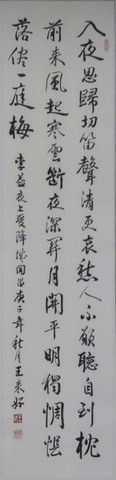 入夜思歸切笛聲清更哀愁人不願聽自到枕
前來風起寒雲斷夜深關月開平明獨惆悵
落儘一庭梅
李益夜上受降城聞笛庚子年秋月王来好